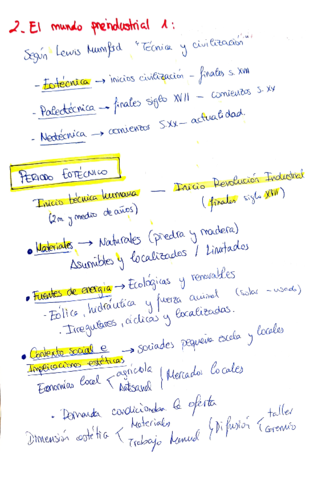 2. El mundo preindustrial 1:
Según Lewis Mumford "Técnica y civilización"
- Eotécnica → inicios civilización - finales s. XVIII
- Paleotécnica → finales siglo XVII - comienzos s. XX
- Neotécnica → comienzos S.XX - actualidad.
PERIODO EOTÉCNICO
Inicio técnica humana — Inicio Revolución Industrial
(2m y medio de años) (finales siglo XVIII)
• Materiales → Naturales (piedra y madera)
Asumibles y localizados / Limitados
• Fuentes de energía → Ecológicas y renovables
- Eólica, hidráulica y fuerza animal
· Irregulares, cíclicas y localizadas.
• Contexto social e implicaciones estéticas → sociedades pequeña escala y locales
Economías local < agrícola / Artesanal / Mercados locales
· Demanda condicionan la oferta
Dimensión estética < Materiales / Trabajo Manual Difusión < taller / Gremio